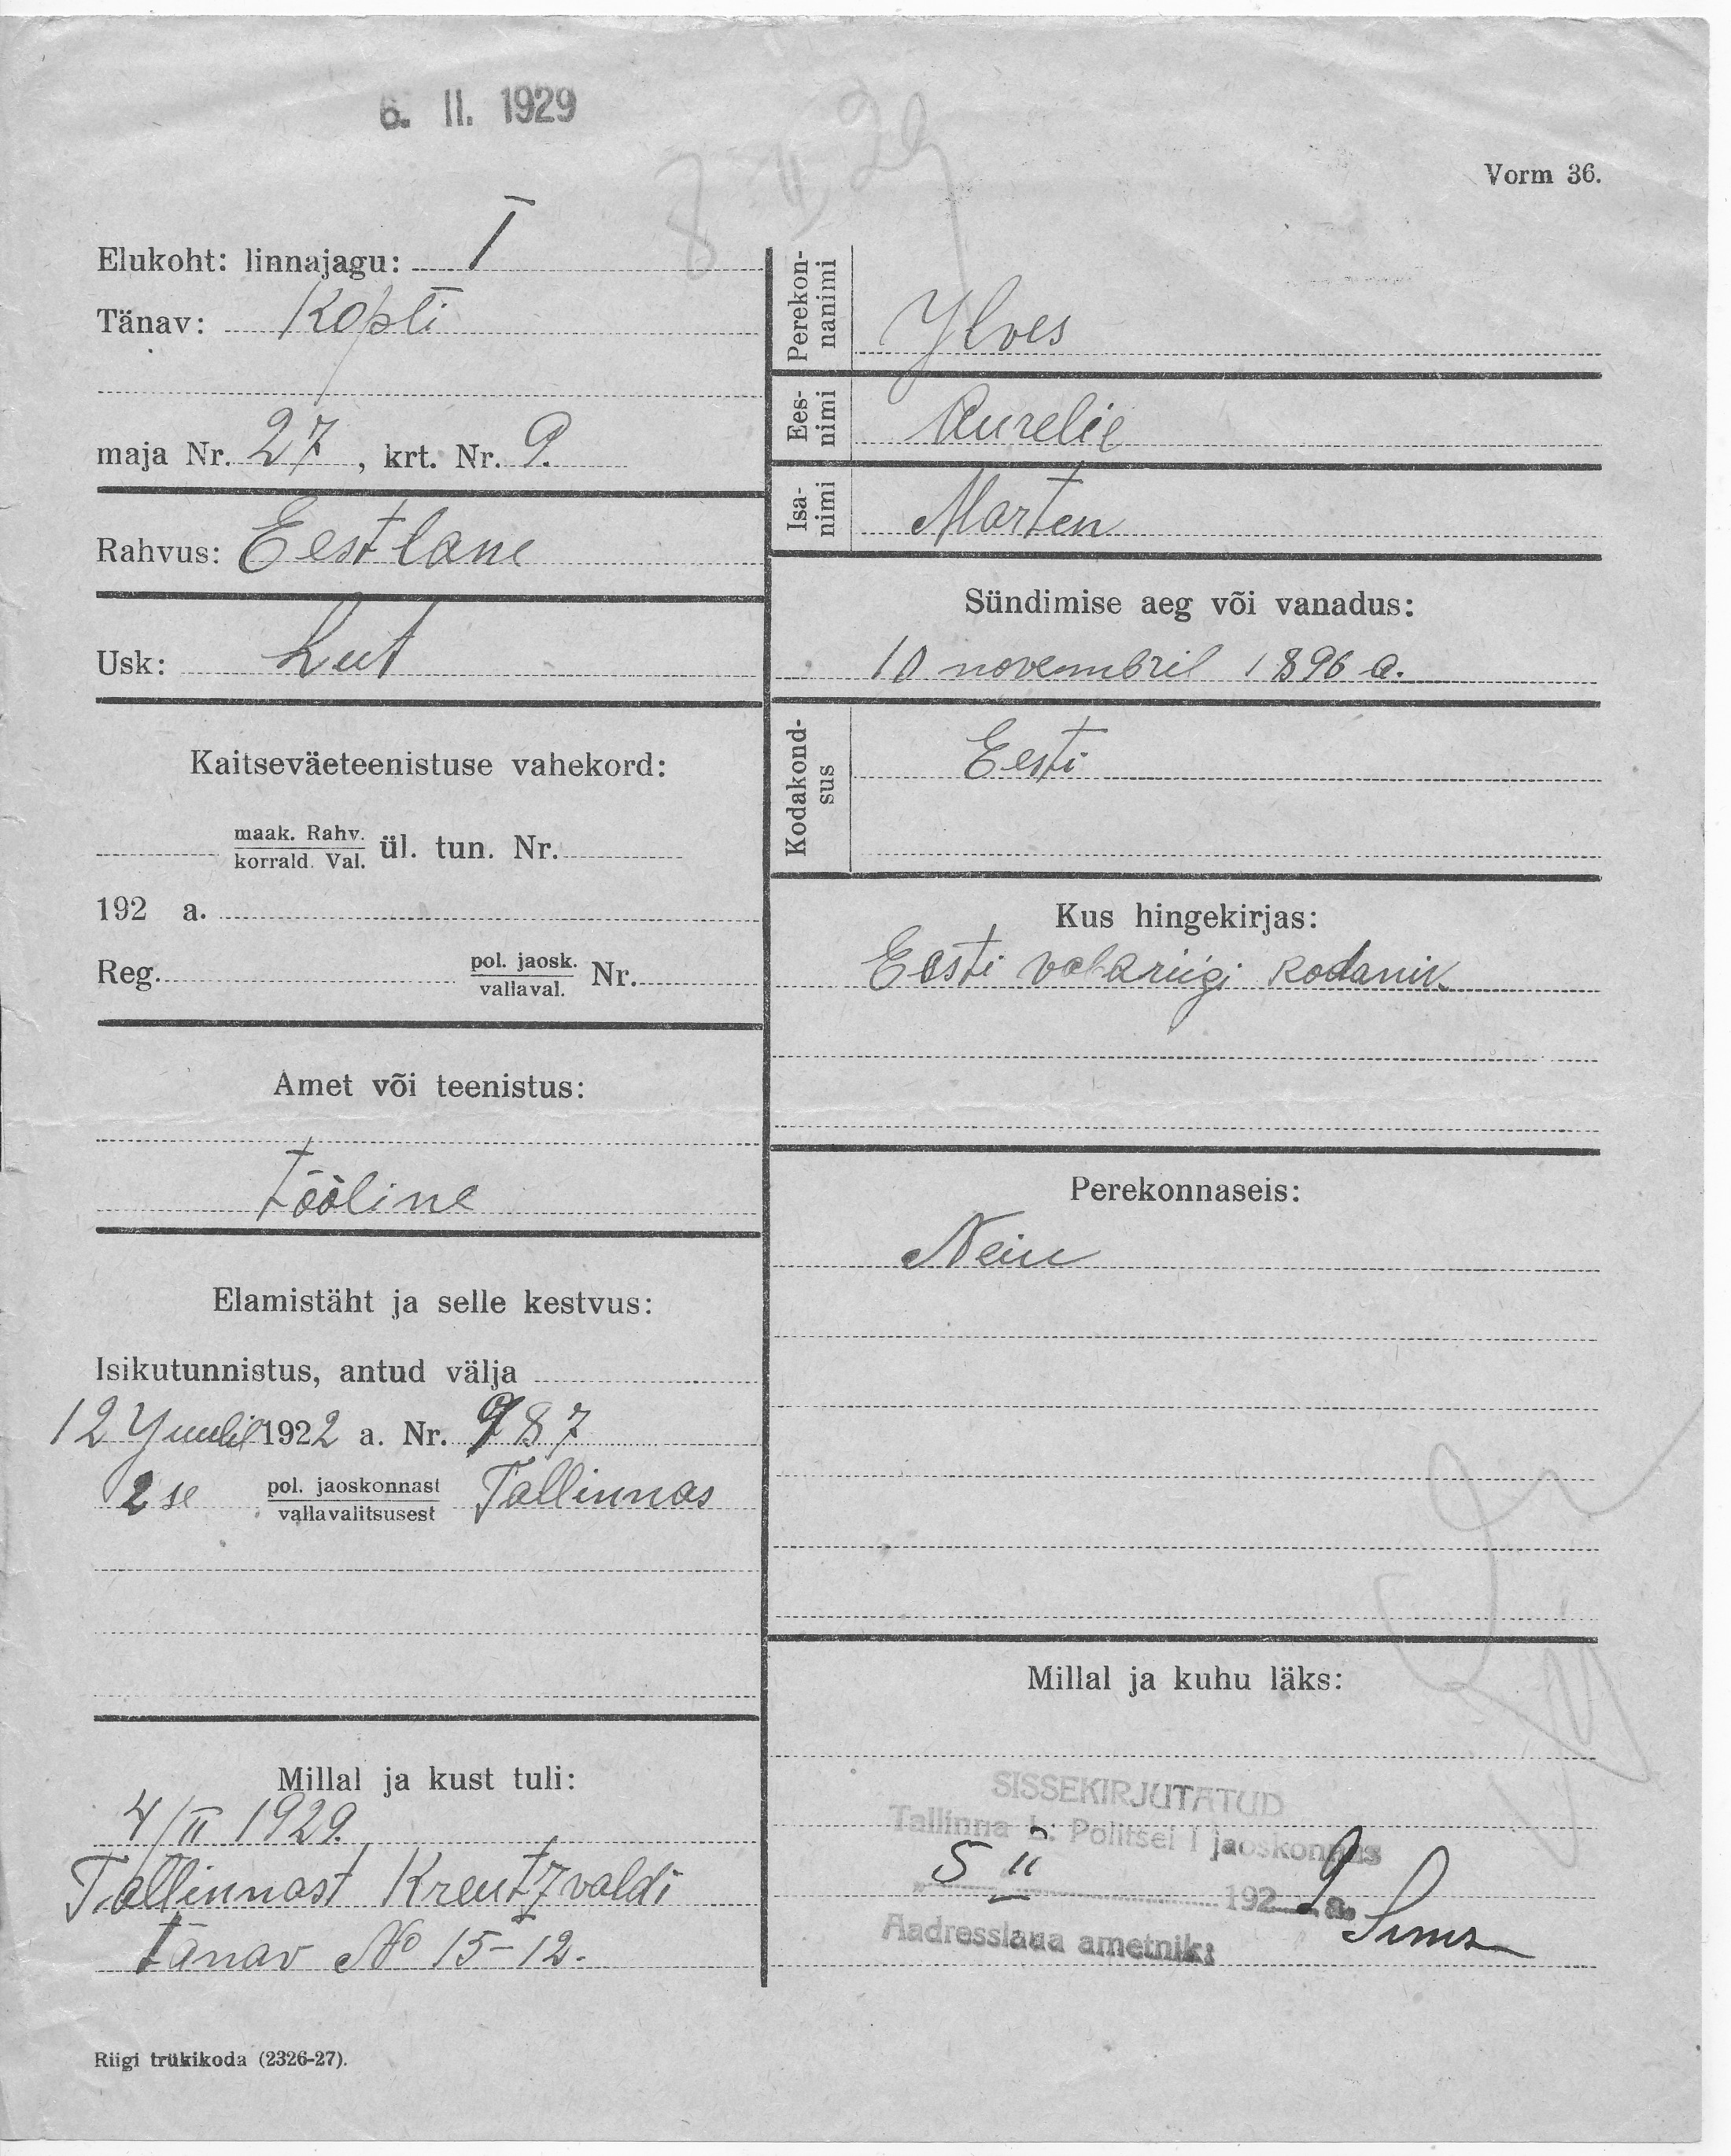 6. II. 1929
8 II 29
Vorm 36.
Elukoht: linnajagu: I
Tänav: Kopli
maja Nr. 27, krt. Nr. 9.
Rahvus: Eestlane
Usk: Lut
Kaitseväeteenistuse vahekord:
maak. Rahv.
korrald. Val. ül. tun. Nr.
192 a.
Reg. pol. jaosk. Nr.
vallaval.
Amet või teenistus:
tööline
Elamistäht ja selle kestvus:
Isikutunnistus, antud välja
12 Yuulil 1922 a. Nr. 987
2 se pol. jaoskonnast Tallinnas
vallavalitsusest
Millal ja kust tuli:
4/II 1929.
Tallinnast Kreutzvaldi
tänav No 15-12.
Riigi trükikoda (2326-27).
Perekon-
nanimi Ylves
Ees-
nimi Aurelie
Isa-
nimi Marten
Sündimise aeg või vanadus:
10 novembril 1896 a.
Kodakond-
sus Eesti
Kus hingekirjas:
Eesti vabariigi kodanik
Perekonnaseis:
Neiu
Millal ja kuhu läks:
SISSEKIRJUTATUD
Tallinna l. Politsei I jaoskonnas
"5 II 1929 a.
Aadresslaua ametnik: